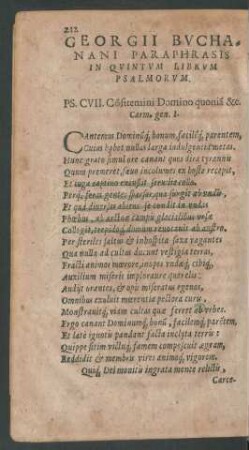 212
GEORGII BVCHA-
NANI PARAPHRASIS
IN QVINTVM LIBRVM
PSALMORVM.
PS. CVII. Cōfitemini Domino quoniā &c.
Carm. gen. I.
CAntemus Dominūq́, bonum, facilēq́, parentem,
Cuius habet nullas larga indulgentia metas.
Hunc grato simul ore canant quos dira tyranni
Quum premeret, saluo incolumes ex hoste recepit,
Et iuga captiuo excussit seruilia collo.
Perq́, feras gentes sparsos, qua surgit ab vndis,
Et qua diuersas abiens se condit in vndas
Phœbus, ab
Collegit, trepidosq́, domum reuocauit ab austro.
Per steriles saltus & inhospita saxa vagantes
Qua nulla ad cultas ducunt vestigia terras,
Fracti animos mœrore, inopes vndaq́, cibiq́,
Auxilium miseris implorauere querelis:
Audijt orantes, & opis miseratus egentes,
Omnibus exoluit miseratia pectora curis,
Monstrauitq́, viam cultas quæ ferret ad vrbes.
Ergo canant Dominumq́, bonū, facilemq́, parētem,
Et latè ignotis pandant facta inclyta terris:
Quippe sitim victuq́, famem compescuit ægram,
Reddidit & membris vires animoq́, vigorem.
Quiq́, Dei monitis ingrata mente relictis,
Carce-